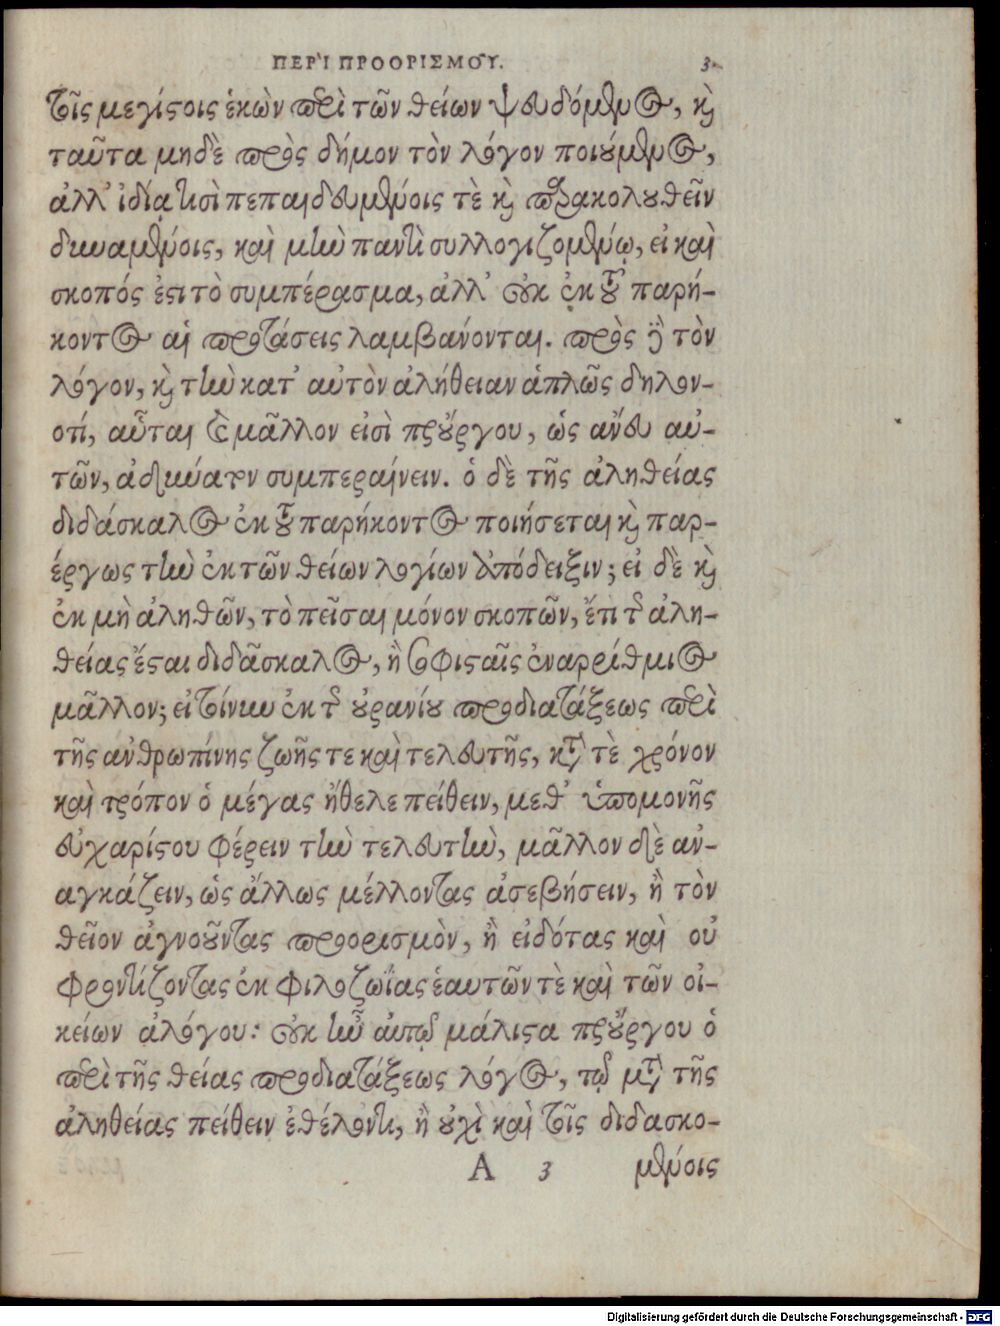 ΠΕΡῚ ΠΡΟΟΡΙΣΜΟΥ͂. 3
τοῖς μεγίστοις ἑκὼν περὶ τῶν θείων ψευδόμενος, καὶ
ταῦτα μηδὲ πρὸς δήμον τὸν λόγον ποιούμενος,
ἀλλ' ἰδίᾳ τισὶ πεπαιδευμένοις τὲ καὶ παρακολουθεῖν
δυναμένοις, καὶ μὴν παντὶ συλλογιζομένῳ, εἰ καὶ
σκοπός ἐστι τὸ συμπέρασμα, ἀλλ' οὐκ ἐκ τοῦ παρή-
κοντος αἱ προτάσεις λαμβάνονται. πρὸς δὲ τὸν
λόγον, καὶ τὴν κατ' αὐτὸν ἀλήθειαν ἁπλῶς δηλον-
οτί, αὗται καὶ μᾶλλον εἰσὶ προὔργου, ὡς ἄνευ αὐ-
τῶν, ἀδύνατον συμπεραίνειν. ὁ δὲ τῆς ἀληθείας
διδάσκαλος ἐκ τοῦ παρήκοντος ποιήσεται καὶ παρ-
έργως τὴν ἐκ τῶν θείων λογίων ἀπόδειξιν; εἰ δὲ καὶ
ἐκ μὴ ἀληθῶν, τὸ πεῖσαι μόνον σκοπῶν, ἔτι τῆς ἀλη-
θείας ἔσται διδάσκαλος, ἢ σοφισταῖς ἐναρρίθμιος
μᾶλλον; εἰ τοίνυν ἐκ τῆς οὐρανίου προδιατάξεως περὶ
τῆς ἀνθρωπίνης ζωῆς τε καὶ τελευτῆς, κατὰ τὲ χρόνον
καὶ τρόπον ὁ μέγας ἤθελε πείθειν, μεθ' ὑπομονῆς
εὐχαρίστου φέρειν τὴν τελευτὴν, μᾶλλον δὲ ἀν-
αγκάζειν, ὡς ἄλλως μέλλοντας ἀσεβήσειν, ἢ τὸν
θεῖον ἀγνοοῦντας προορισμὸν, ἢ εἰδότας καὶ οὐ
φροντίζοντας ἐκ φιλοζωΐας ἑαυτῶν τὲ καὶ τῶν οἰ-
κείων ἀλόγου: οὐκ ἦν αὐτῷ μάλιστα προὔργου ὁ
περὶ τῆς θείας προδιατάξεως λόγος, τῷ μετὰ τῆς
ἀληθείας πείθειν ἐθέλοντι, ἢ οὐχὶ καὶ τοῖς διδασκο-
A 3 μένοις
Digitalisierung gefördert durch die Deutsche Forschungsgemeinschaft - DFG